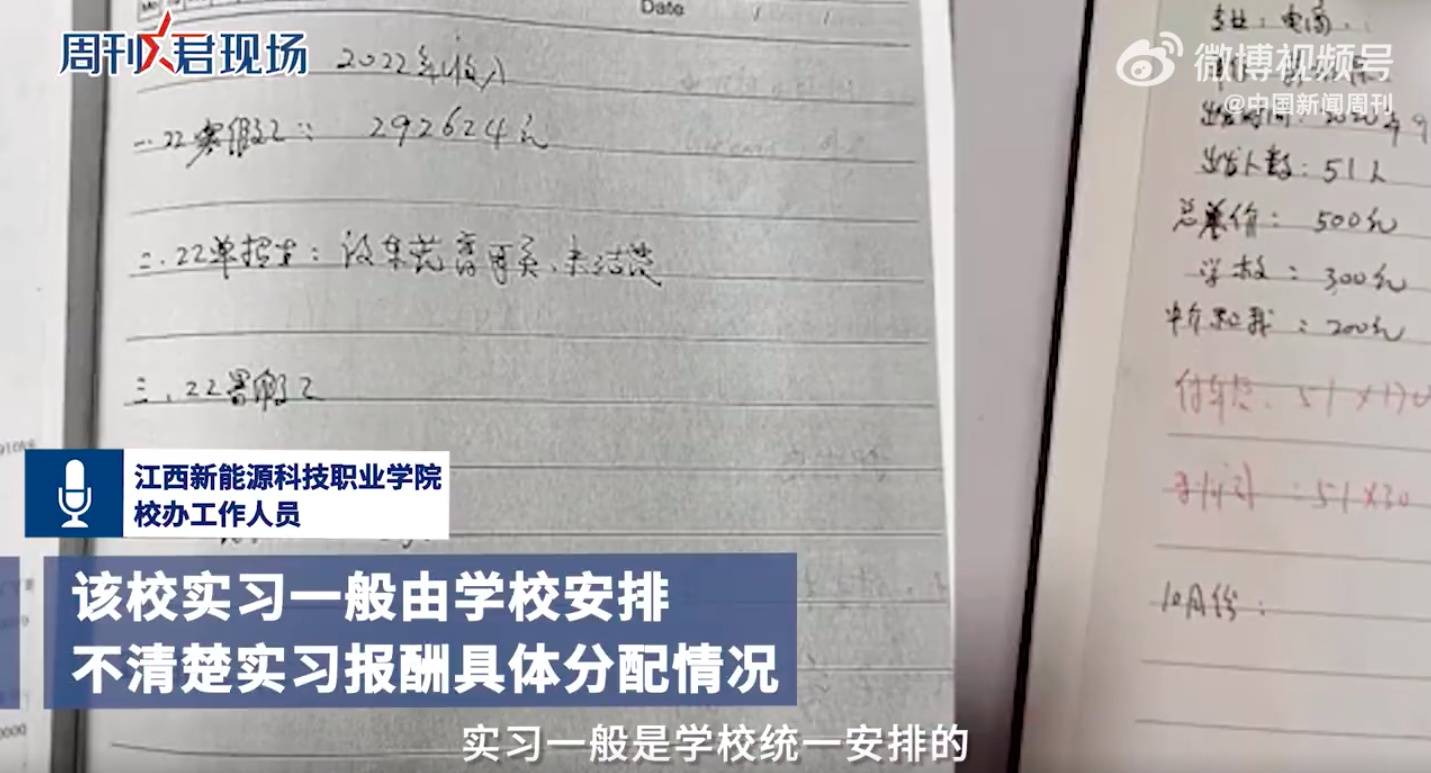 周刊君现场
Date
微博视频号
@中国新闻周刊
2022年收入
一.22寒假工: 292624元
二.22单招生:
未结费
三.22暑假工
专业:电商
出发时间:2020年9
出发人数:51人
总单价:500元
学校:300元
中介和我:200元
付车总:51×170
:51×30
10月份:
江西新能源科技职业学院
校办工作人员
该校实习一般由学校安排
不清楚实习报酬具体分配情况
实习一般是学校统一安排的